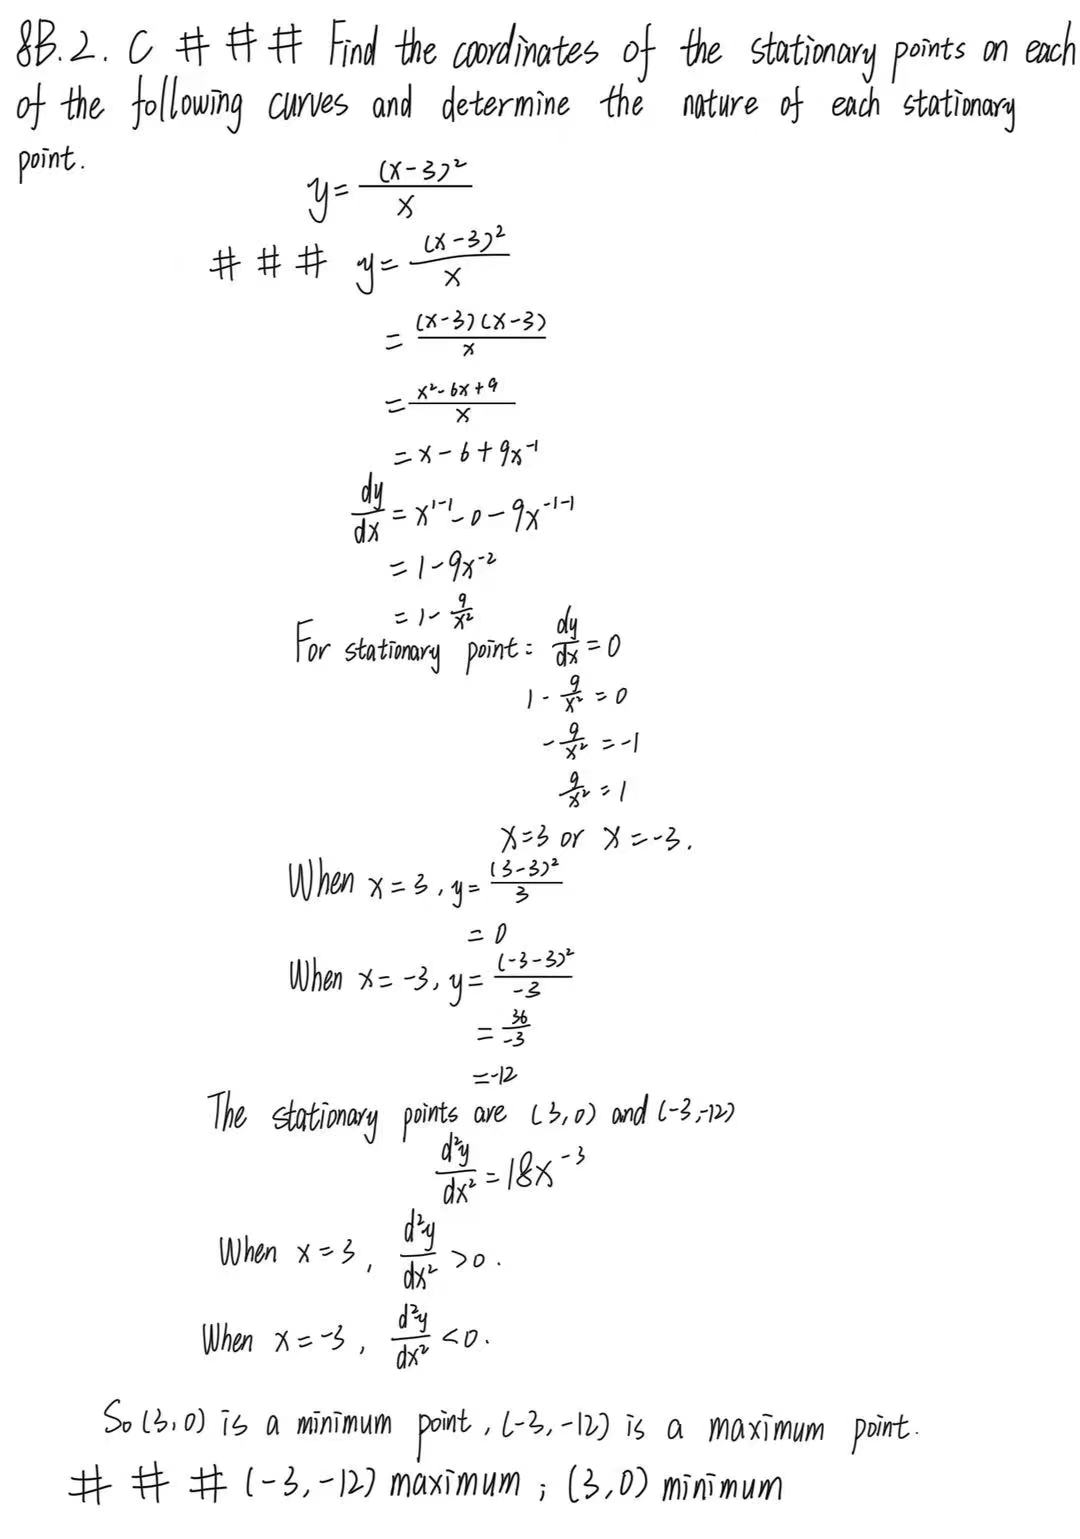 8B.2. C # # # Find the coordinates of the stationary points on each
of the following curves and determine the nature of each stationary
point.
y = (x-3)²/x
# # # y = (x-3)²/x
= (x-3)(x-3)/x
= x²-6x+9/x
= x-6+9x⁻¹
dy/dx = x¹⁻¹-0-9x⁻¹⁻¹
= 1-9x⁻²
= 1-9/x²
For stationary point: dy/dx = 0
1-9/x² = 0
-9/x² = -1
9/x² = 1
x=3 or x=-3.
When x=3, y= (3-3)²/3
= 0
When x=-3, y= (-3-3)²/-3
= 36/-3
=-12
The stationary points are (3,0) and (-3,-12)
d²y/dx² = 18x⁻³
When x=3, d²y/dx² >0.
When x=-3, d²y/dx² <0.
So (3,0) is a minimum point, (-3,-12) is a maximum point.
# # # (-3,-12) maximum; (3,0) minimum